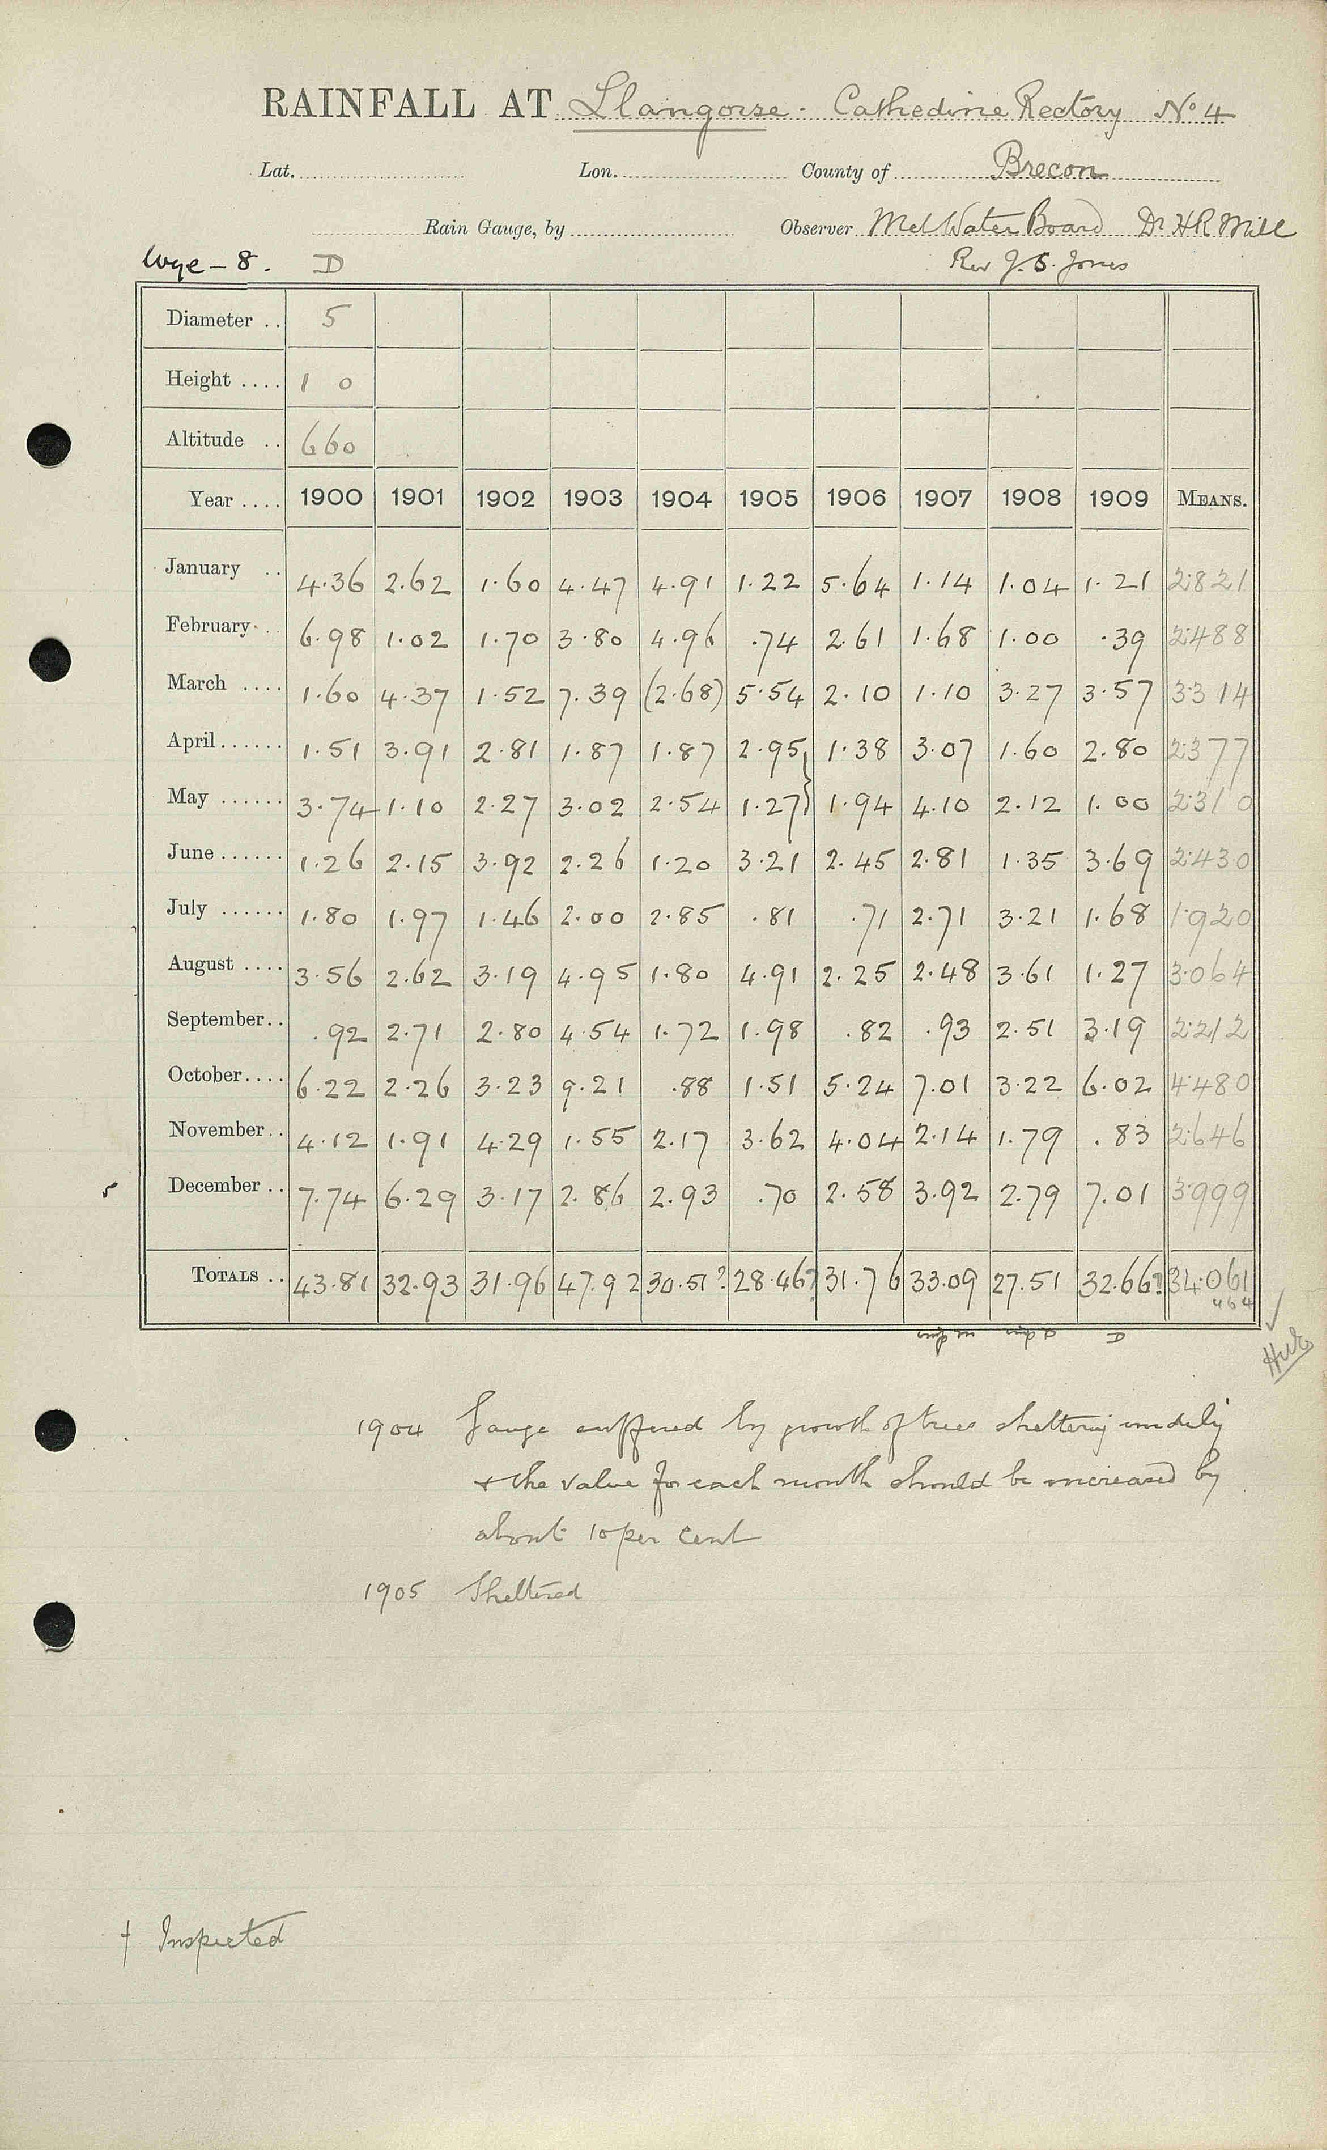 RAINFALL AT Llangorse - Cathedine Rectory No 4
Lat. Lon. County of Brecon
Rain Gauge, by Observer Met Water Board Dr H R Mill
Wye - 8. D Rev J. S. Jones
Diameter .. 5
Height .... 1 0
Altitude .. 660
Year .... 1900 1901 1902 1903 1904 1905 1906 1907 1908 1909 MEANS.
January .. 4.36 2.62 1.60 4.47 4.91 1.22 5.64 1.14 1.04 1.21 2.821
February.. 6.98 1.02 1.70 3.80 4.96 .74 2.61 1.68 1.00 .39 2.488
March .... 1.60 4.37 1.52 7.39 (2.68) 5.54 2.10 1.10 3.27 3.57 3.314
April...... 1.51 3.91 2.81 1.87 1.87 2.95} 1.38 3.07 1.60 2.80 2.377
May ...... 3.74 1.10 2.27 3.02 2.54 1.27} 1.94 4.10 2.12 1.00 2.310
June...... 1.26 2.15 3.92 2.26 1.20 3.21 2.45 2.81 1.35 3.69 2.430
July ...... 1.80 1.97 1.46 2.00 2.85 .81 .71 2.71 3.21 1.68 1.920
August .... 3.56 2.62 3.19 4.95 1.80 4.91 2.25 2.48 3.61 1.27 3.064
September.. .92 2.71 2.80 4.54 1.72 1.98 .82 .93 2.51 3.19 2.212
October.... 6.22 2.26 3.23 9.21 .88 1.51 5.24 7.01 3.22 6.02 4.480
November.. 4.12 1.91 4.29 1.55 2.17 3.62 4.04 2.14 1.79 .83 2.646
5 December .. 7.74 6.29 3.17 2.86 2.93 .70 2.58 3.92 2.79 7.01 3.999
TOTALS .. 43.81 32.93 31.96 47.92 30.51? 28.46? 31.76 33.09 27.51 32.66? 34.061
D
1904 Gauge suffered by growth of trees sheltering unduly
+ the value for each month should be increased by
about 10 per cent
1905 Sheltered
† Inspected